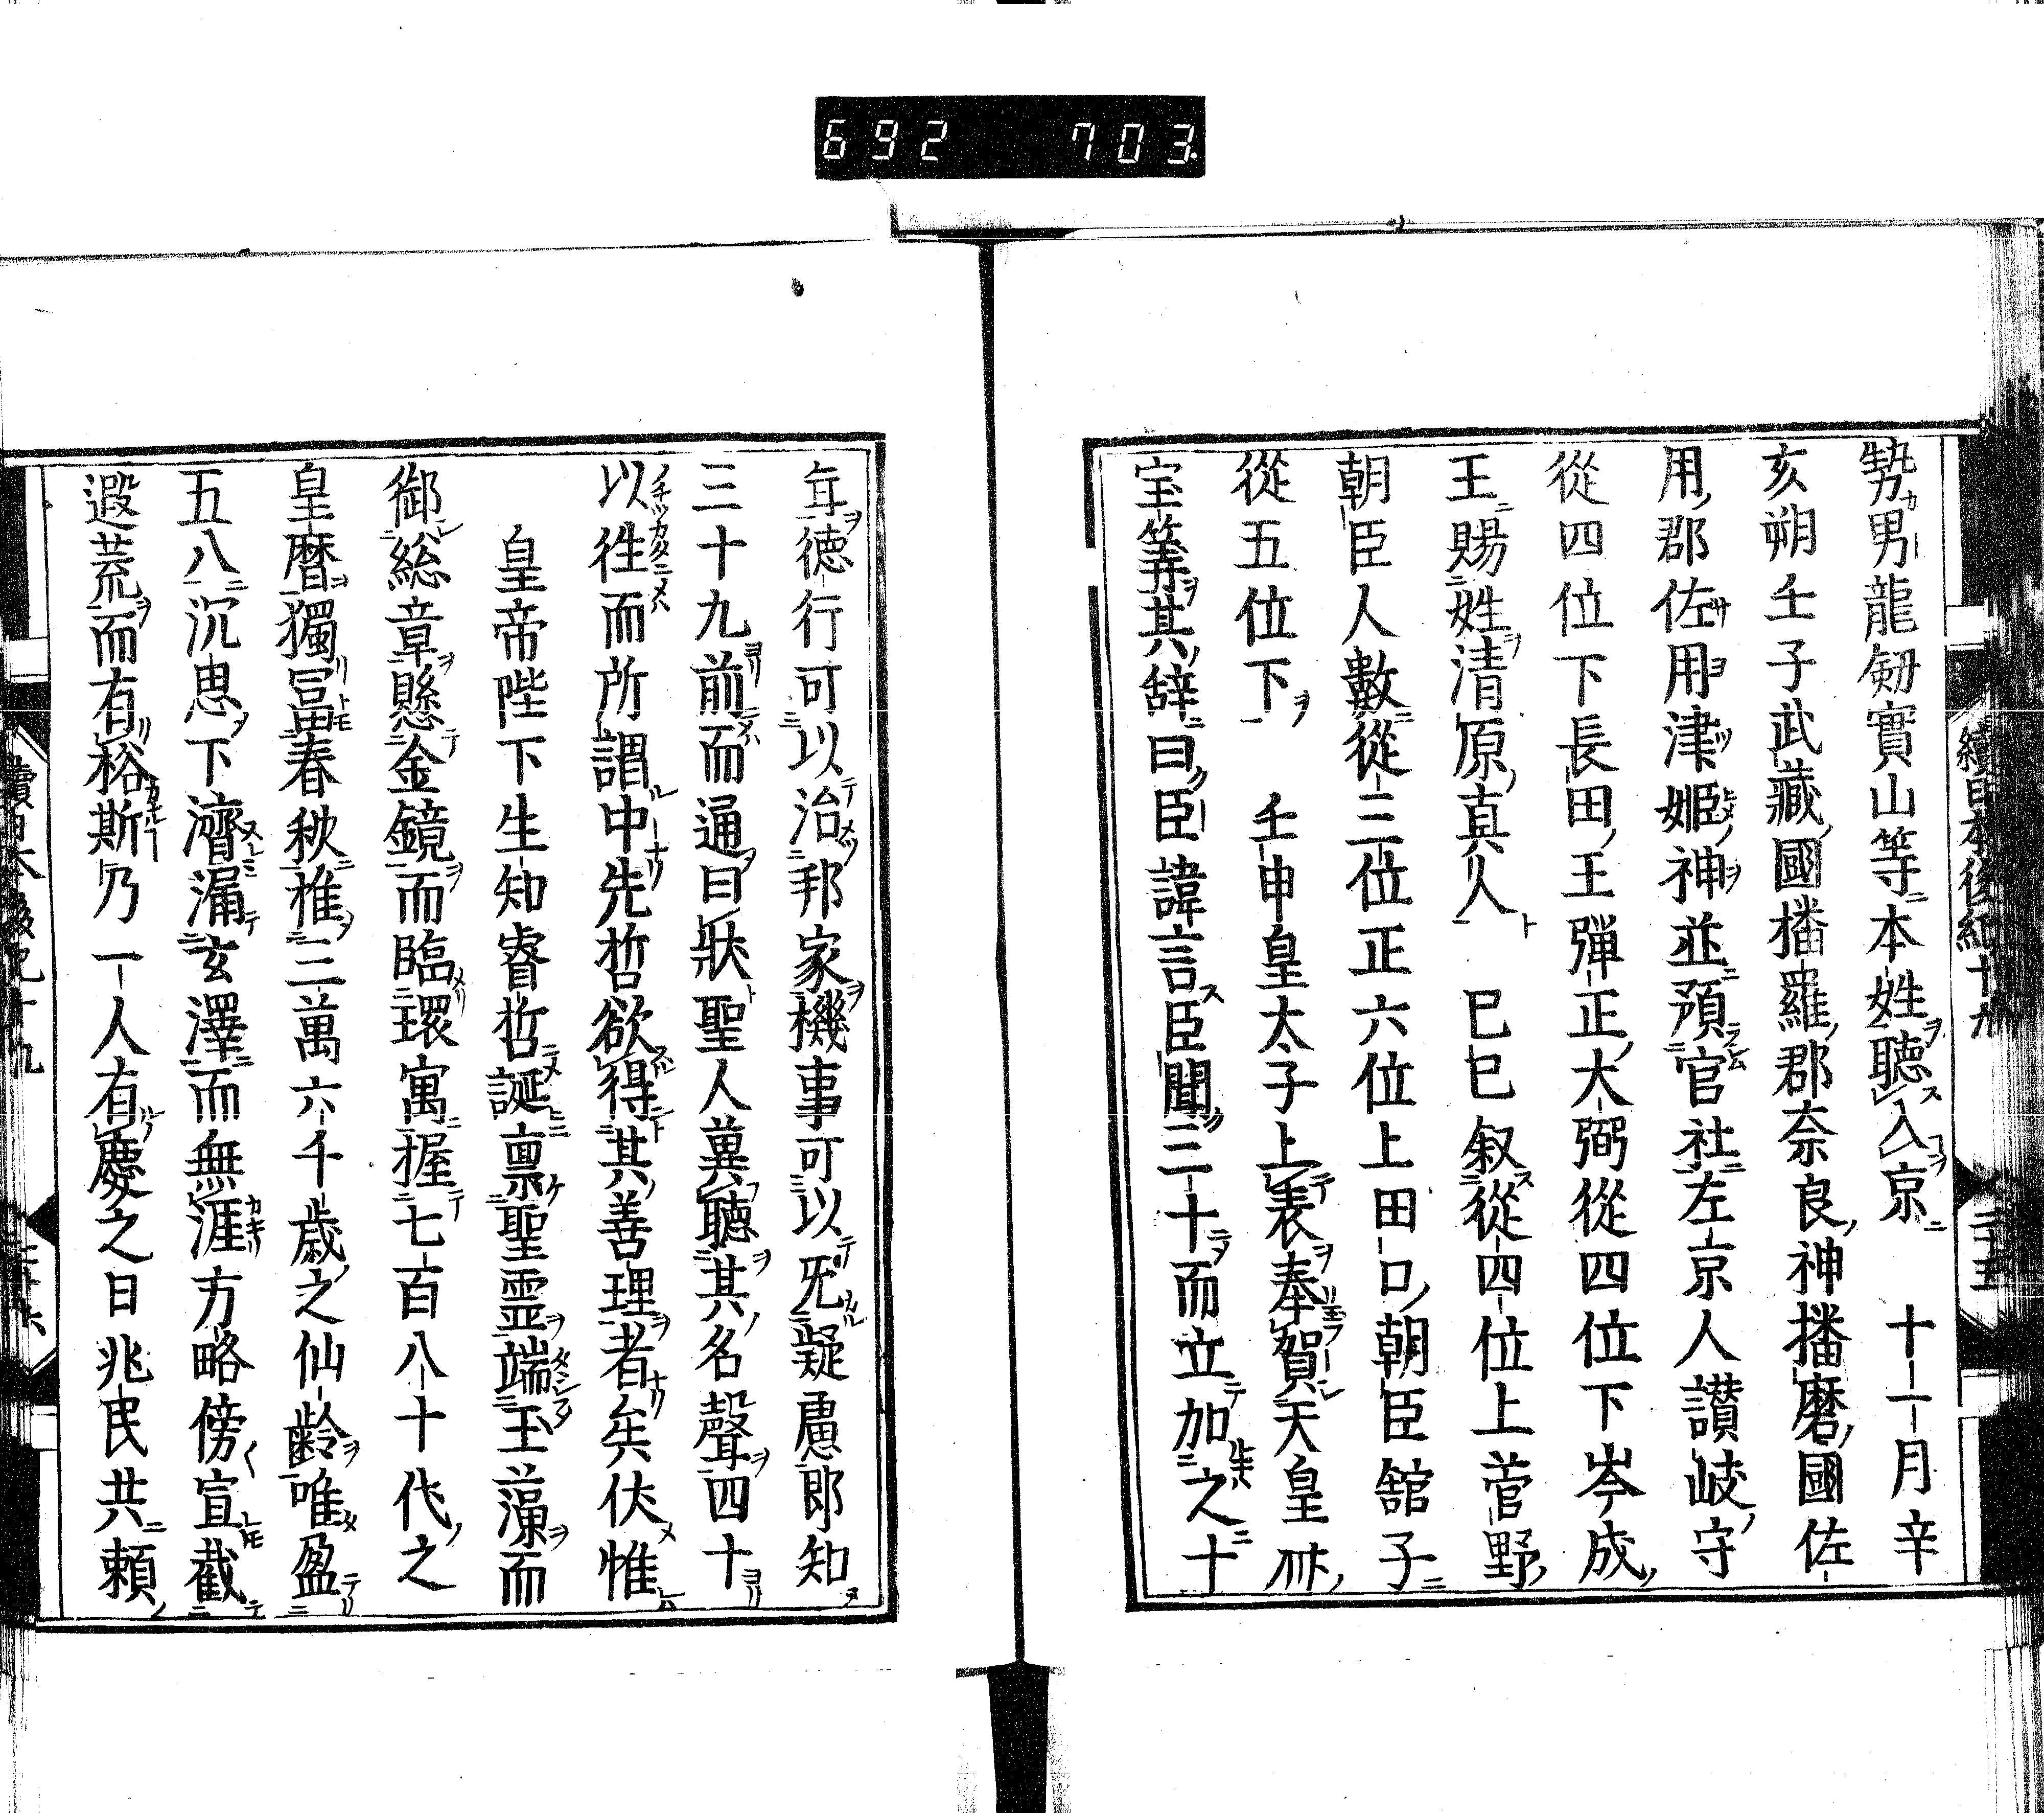 692 703
續日本後紀十九
勢男龍劒實山等本姓聽入京 十一月辛
亥朔壬子武藏國播羅郡奈良神播磨國佐
用郡佐用津姬神並預官社左京人讃岐守
從四位下長田王彈正大弼從四位下岑成
王賜姓清原真人 已巳叙從四位上菅野
朝臣人數從三位正六位上田口朝臣舘子
從五位下 壬申皇太子上表奉賀天皇卌
宝筭其辞曰臣諱言臣聞三十而立加之十
年徳行可以治邦家機事可以旡疑慮郎知
三十九前而通曰狀聖人冀聽其名聲四十
以徃而所謂中先哲欲得其善理者矣伏惟
皇帝陛下生知睿哲誕禀聖霊端玉藻而
御総章懸金鏡而臨環寓握七百八十代之
皇暦獨冨春秋椎三萬六千歳之仙齡唯盈
五八沉思下濟漏玄澤而無涯方略傍宣截
遐荒而有裕斯乃一人有慶之日兆民共頼